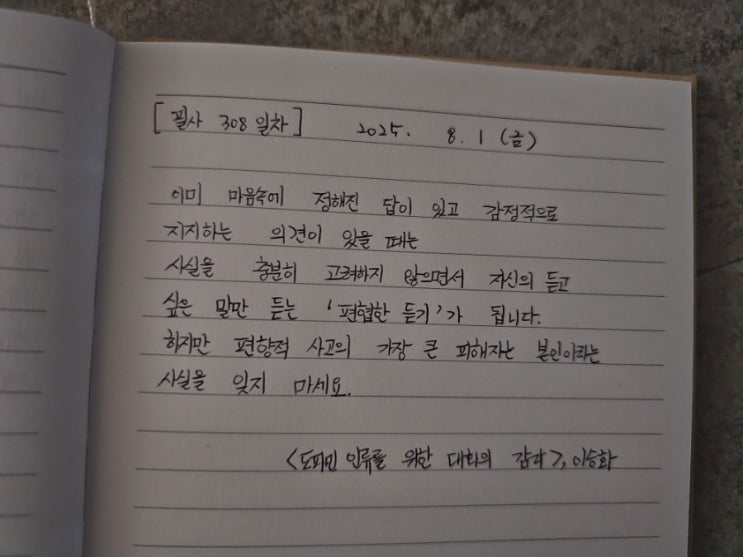 [필사 308일차] 2025. 8. 1 (금)
이미 마음속에 정해진 답이 있고 감정적으로
지지하는 의견이 있을 때는
사실을 충분히 고려하지 않으면서 자신의 듣고
싶은 말만 듣는 '편협한 듣기'가 됩니다.
하지만 편향적 사고의 가장 큰 피해자는 본인이라는
사실을 잊지 마세요.
<도파민 인류를 위한 대화의 감각>, 이승화